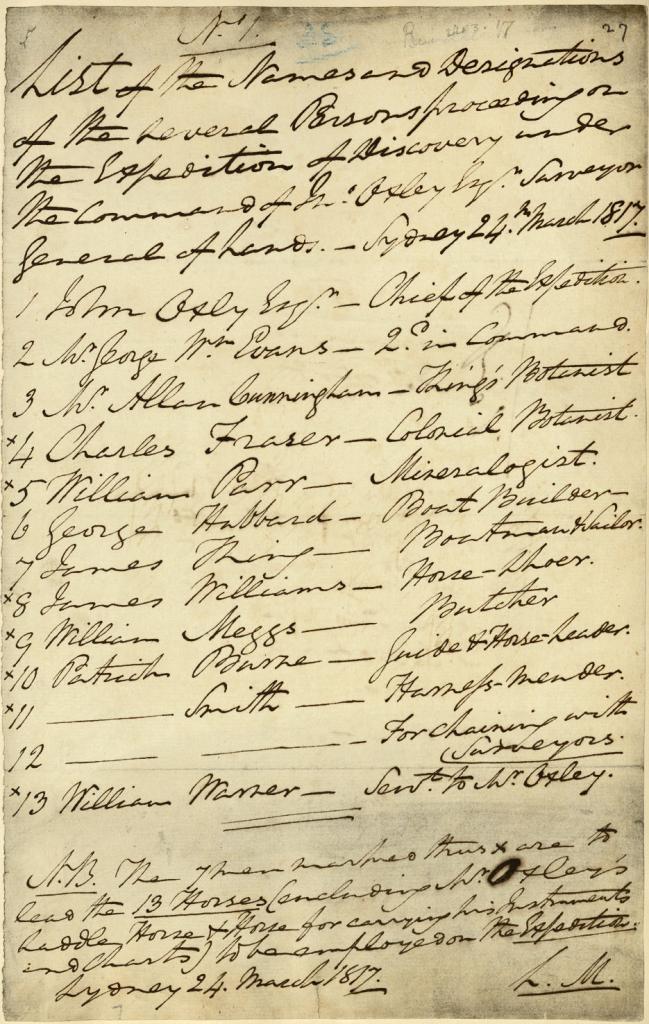 No. 1.
27
List of the Names and Designations
of the several Persons proceeding on
the Expedition of Discovery under
the Command of Jno. Oxley Esqr. Surveyor
General of Lands. — Sydney 24th. March 1817.
1 John Oxley Esqr. — Chief of the Expedition.
2 Mr. George Wm. Evans — 2d. in Command.
3 Mr. Allan Cunningham — King's Botanist
x4 Charles Fraser — Colonial Botanist.
x5 William Parr — Mineralogist.
6 George Hubbard — Boat Builder —
7 James King — Boatman & Sailor.
x8 James Williams — Horse-Shoer.
x9 William Meggs — Butcher
x10 Patrick Burne — Guide & Horse-leader.
x11 — Smith — Harness-Mender.
12 — — — For chaining with
Surveyors.
x13 William Warner — Servt. to Mr. Oxley.
N.B. The 7 men marked thus x are to
lead the 13 Horses (including Mr. Oxley's
saddle Horse & Horse for carrying his Instruments
and Charts) to be employed on the Expedition.
Sydney 24. March 1817.
L. M.